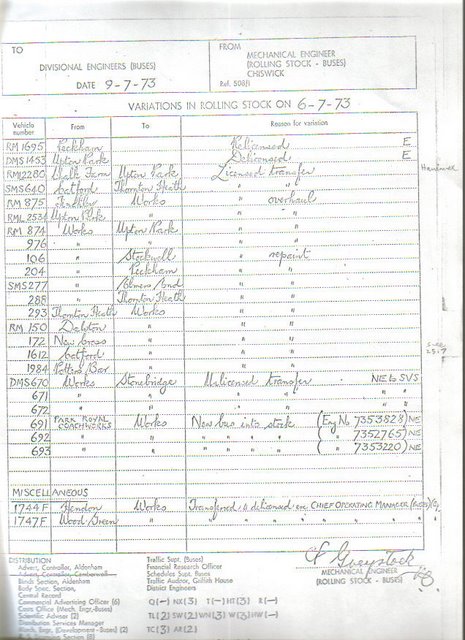 TO
DIVISIONAL ENGINEERS (BUSES)
DATE 9-7-73
FROM
MECHANICAL ENGINEER
(ROLLING STOCK - BUSES)
CHISWICK
VARIATIONS IN ROLLING STOCK ON 6-7-73
Vehicle number From To Reason for variation
RM 1695 Peckham Relicensed E
DMS 1453 Upton Park Delicensed E
RML2280 Chalk Farm Upton Park Licensed transfer
SMS 640 Catford Thornton Heath " "
RM 875 Finchley Works " overhaul
RML 2534 Upton Park " " "
RM 874 Works Upton Park " "
976 " " " "
106 " Stockwell " repaint
204 " Peckham " "
SMS 277 " " "
288 " Thornton Heath " "
293 Thornton Heath Works " "
RM 150 Dalston " " "
172 New Cross " " "
1612 Catford " " "
1984 Potters Bar " " "
DMS 670 Works Stonebridge Unlicensed transfer NE to SVS
671 " " " " " "
672 " " " " " "
691 PARK ROYAL COACHWORKS Works New bus into stock (Eng No 7353828) NE
692 " " " " " " ( " 7352765) NE
693 " " " " " " ( " 7353220) NE
MISCELLANEOUS
1744F Hendon Works Transferred & delicensed CHIEF OPERATING MANAGER (BUSES)
1747F Wood Green " " " " " " "
DISTRIBUTION
Advert, Controller, Aldenham
Advert, Controller, Camberwell
Bonds Section, Aldenham
Body Spec, Section,
Central Record
Commercial Advertising Officer (6)
Costs Office (Mech. Engr.-Buses)
Scientific Adviser (2)
Distribution Services Manager
Mech. Engr. (Development-Buses) (2)
Traffic Supt. (Buses)
Financial Research Officer
Schedules Supt. Buses
Traffic Auditor, Griffith House
District Engineers
Q(-) NX(3) T(-) HT(3) R(-)
TL(2) SW(2) WN(3) W(3) HW(-)
TC(3) AR(2)
MECHANICAL ENGINEER
(ROLLING STOCK - BUSES)